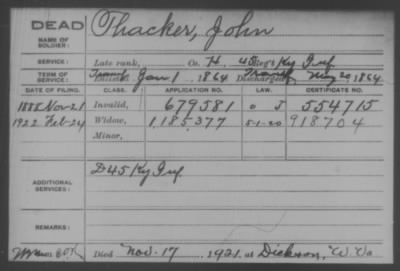 DEAD Thacker, John
NAME OF SOLDIER:
SERVICE: Late rank, Co. H, 45 Reg't Ky Inf
TERM OF SERVICE: Enlisted Jan 1 1864 Discharged 1864
DATE OF FILING. CLASS. APPLICATION NO. LAW. CERTIFICATE NO.
1888 Nov-21 Invalid, 679581 554715
1922 Feb-24 Widow, 1,185,377 5-1-20 918704
Minor,
ADDITIONAL SERVICES: D 45 Ky Inf
REMARKS:
Died Nov-17 1921 at Dickson, W. Va